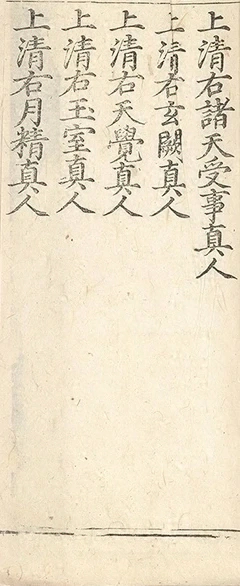 上清右諸天受事真人
上清右玄闕真人
上清右天覺真人
上清右玉室真人
上清右月精真人